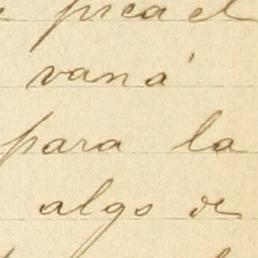 pica el
vaná
para la
algo de